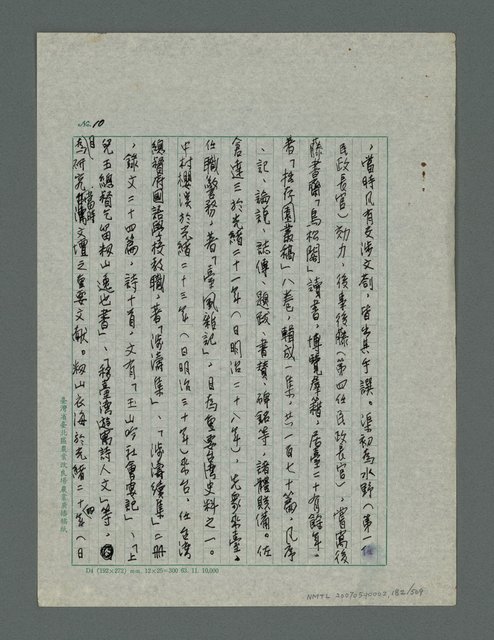 No. 10
，當時凡有交涉文割，皆出其手譔。渠初為水野（第一任
民政長官）効力，後事後藤（第四任民政長官），嘗寓後
藤書齋「鳥松閣」讀書，博覽羣籍，居臺二十有餘年。
著「拙存園叢稿」八卷，輯成一集，共一百七十篇，凡序
、記、論說、誌傳、題跋、書贊、碑銘等，諸體賅備。佐
倉達三於光緒二十一年（日明治二十八年），先家來臺，
任職警務，著「臺風雜記」，日為重要臺灣史料之一。
中村櫻溪於光緒二十三年（日明治三十年）來台，任台灣
總督府國語學校教職，著「涉濤集」、「涉濤續集」二冊
，錄文二十四篇，詩十首，文有「玉山吟社會宴記」、「上
兒玉總督乞留籾山逸也書」、「移臺灣遊寓詩人文」等，
為研究當時臺灣文壇之重要文獻。籾山衣洲於光緒二十四年（日
臺灣省臺北區農業改良場農業廣播稿紙
D4 (192×272) mm. 12×25=300 63. 11. 10,000
NMTL 20070540002, 182/509